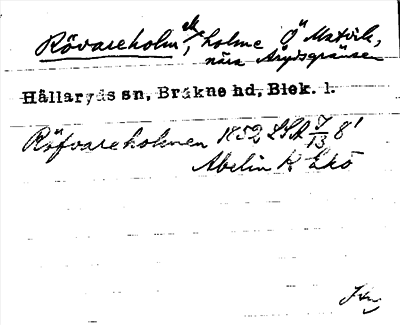 Rövareholm, holme Ö Matvik,
nära Årydsgränsen
Hällaryds sn, Bräkne hd, Blek. l.
Röfvareholmen 1852 LSA 7/13 8¹
Abelin K Ekö